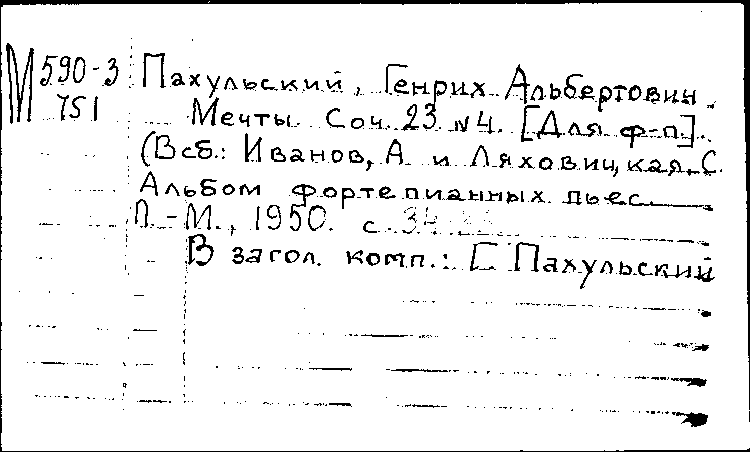 М 590-3
751
Пахульский, Генрих Альбертович.
Мечты. Соч. 23 №4. [Для ф-п.].
(В сб.: Иванов, А. и Ляховицкая, С.
Альбом фортепианных пьес.
Л.-М., 1950. с.
В загол. комп.: Г. Пахульский